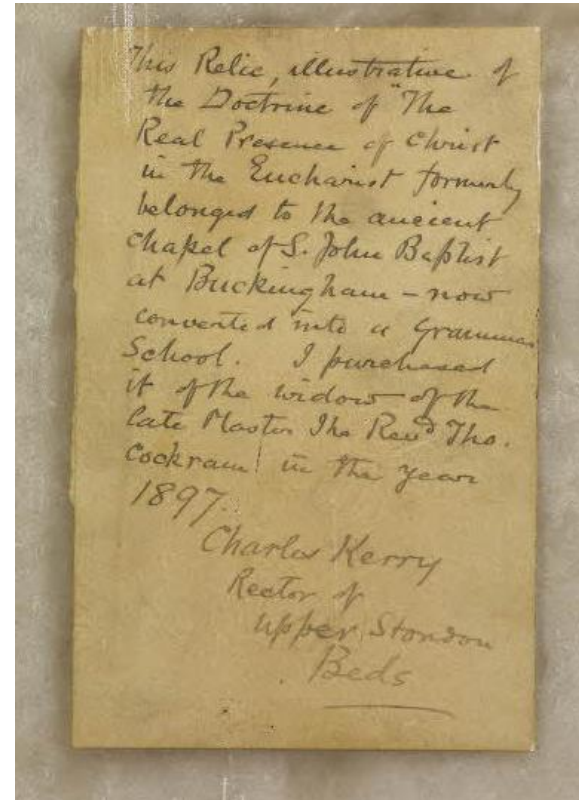 This Relic, illustrative of
the Doctrine of "The
Real Presence of Christ
in the Eucharist formerly
belonged to the ancient
Chapel of S. John Baptist
at Buckingham – now
converted into a Grammar
School. I purchased
it of the widow of the
late Master The Revd Tho.
Cockram in the year
1897.
Charles Kerry
Rector of
Upper Stondon
Beds